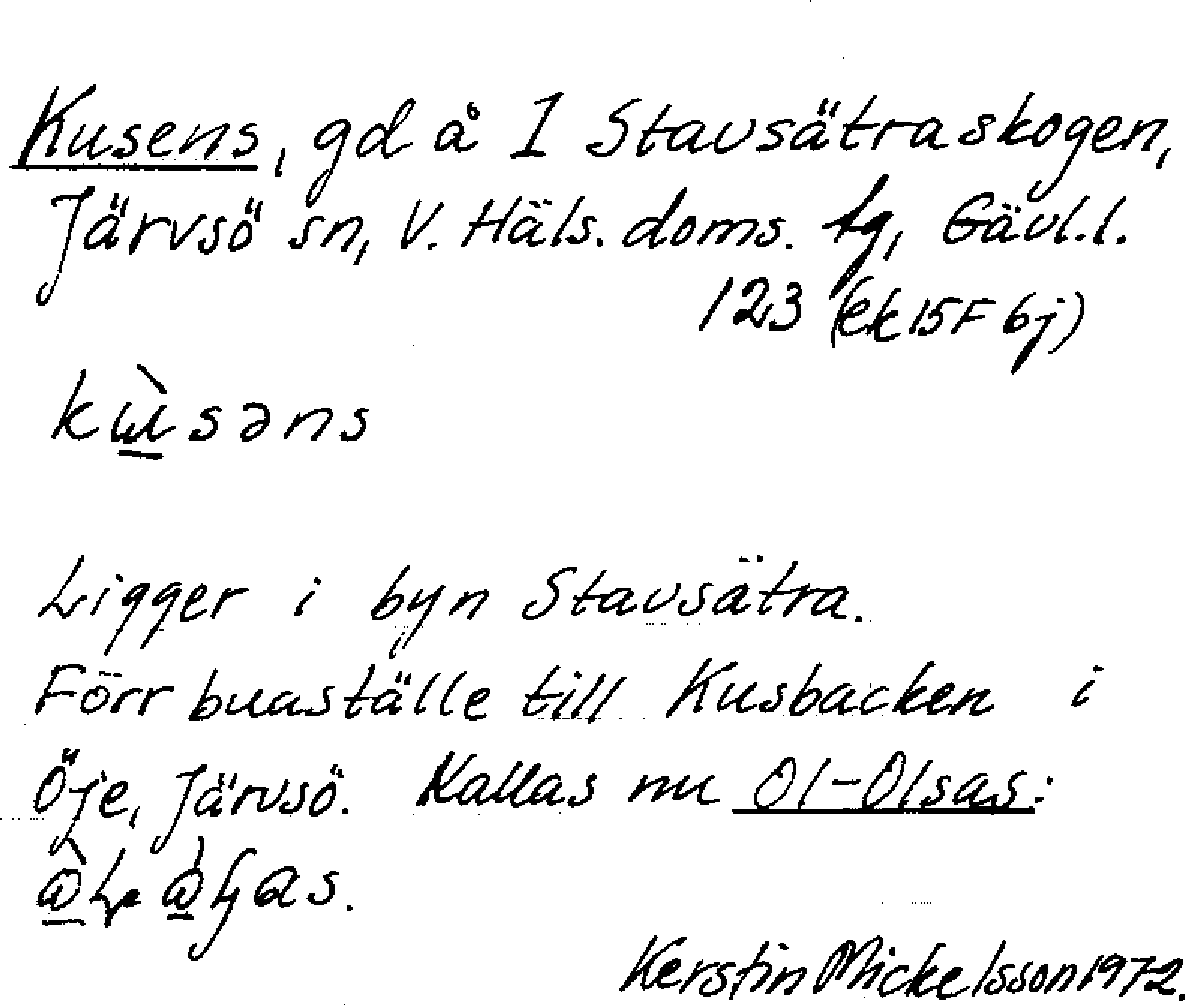 Kusens, gd å I Stavsätraskogen,
Järvsö sn, V. Häls. doms. tg, Gävl.l.
123 (ek 15F 6j)
kɯ̀səns
Ligger i byn Stavsätra.
Förr buaställe till Kusbacken i
Öje, Järvsö. Kallas nu Ol-Olsas:
Kerstin Mickelsson 1972.